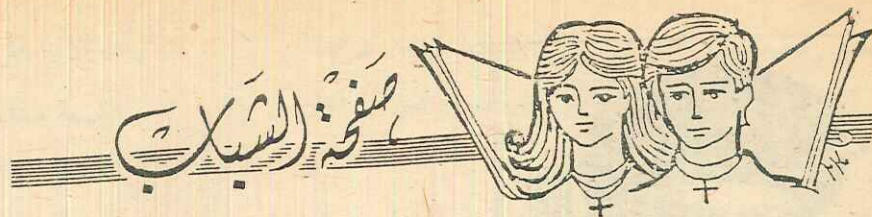 صفحة الشباب